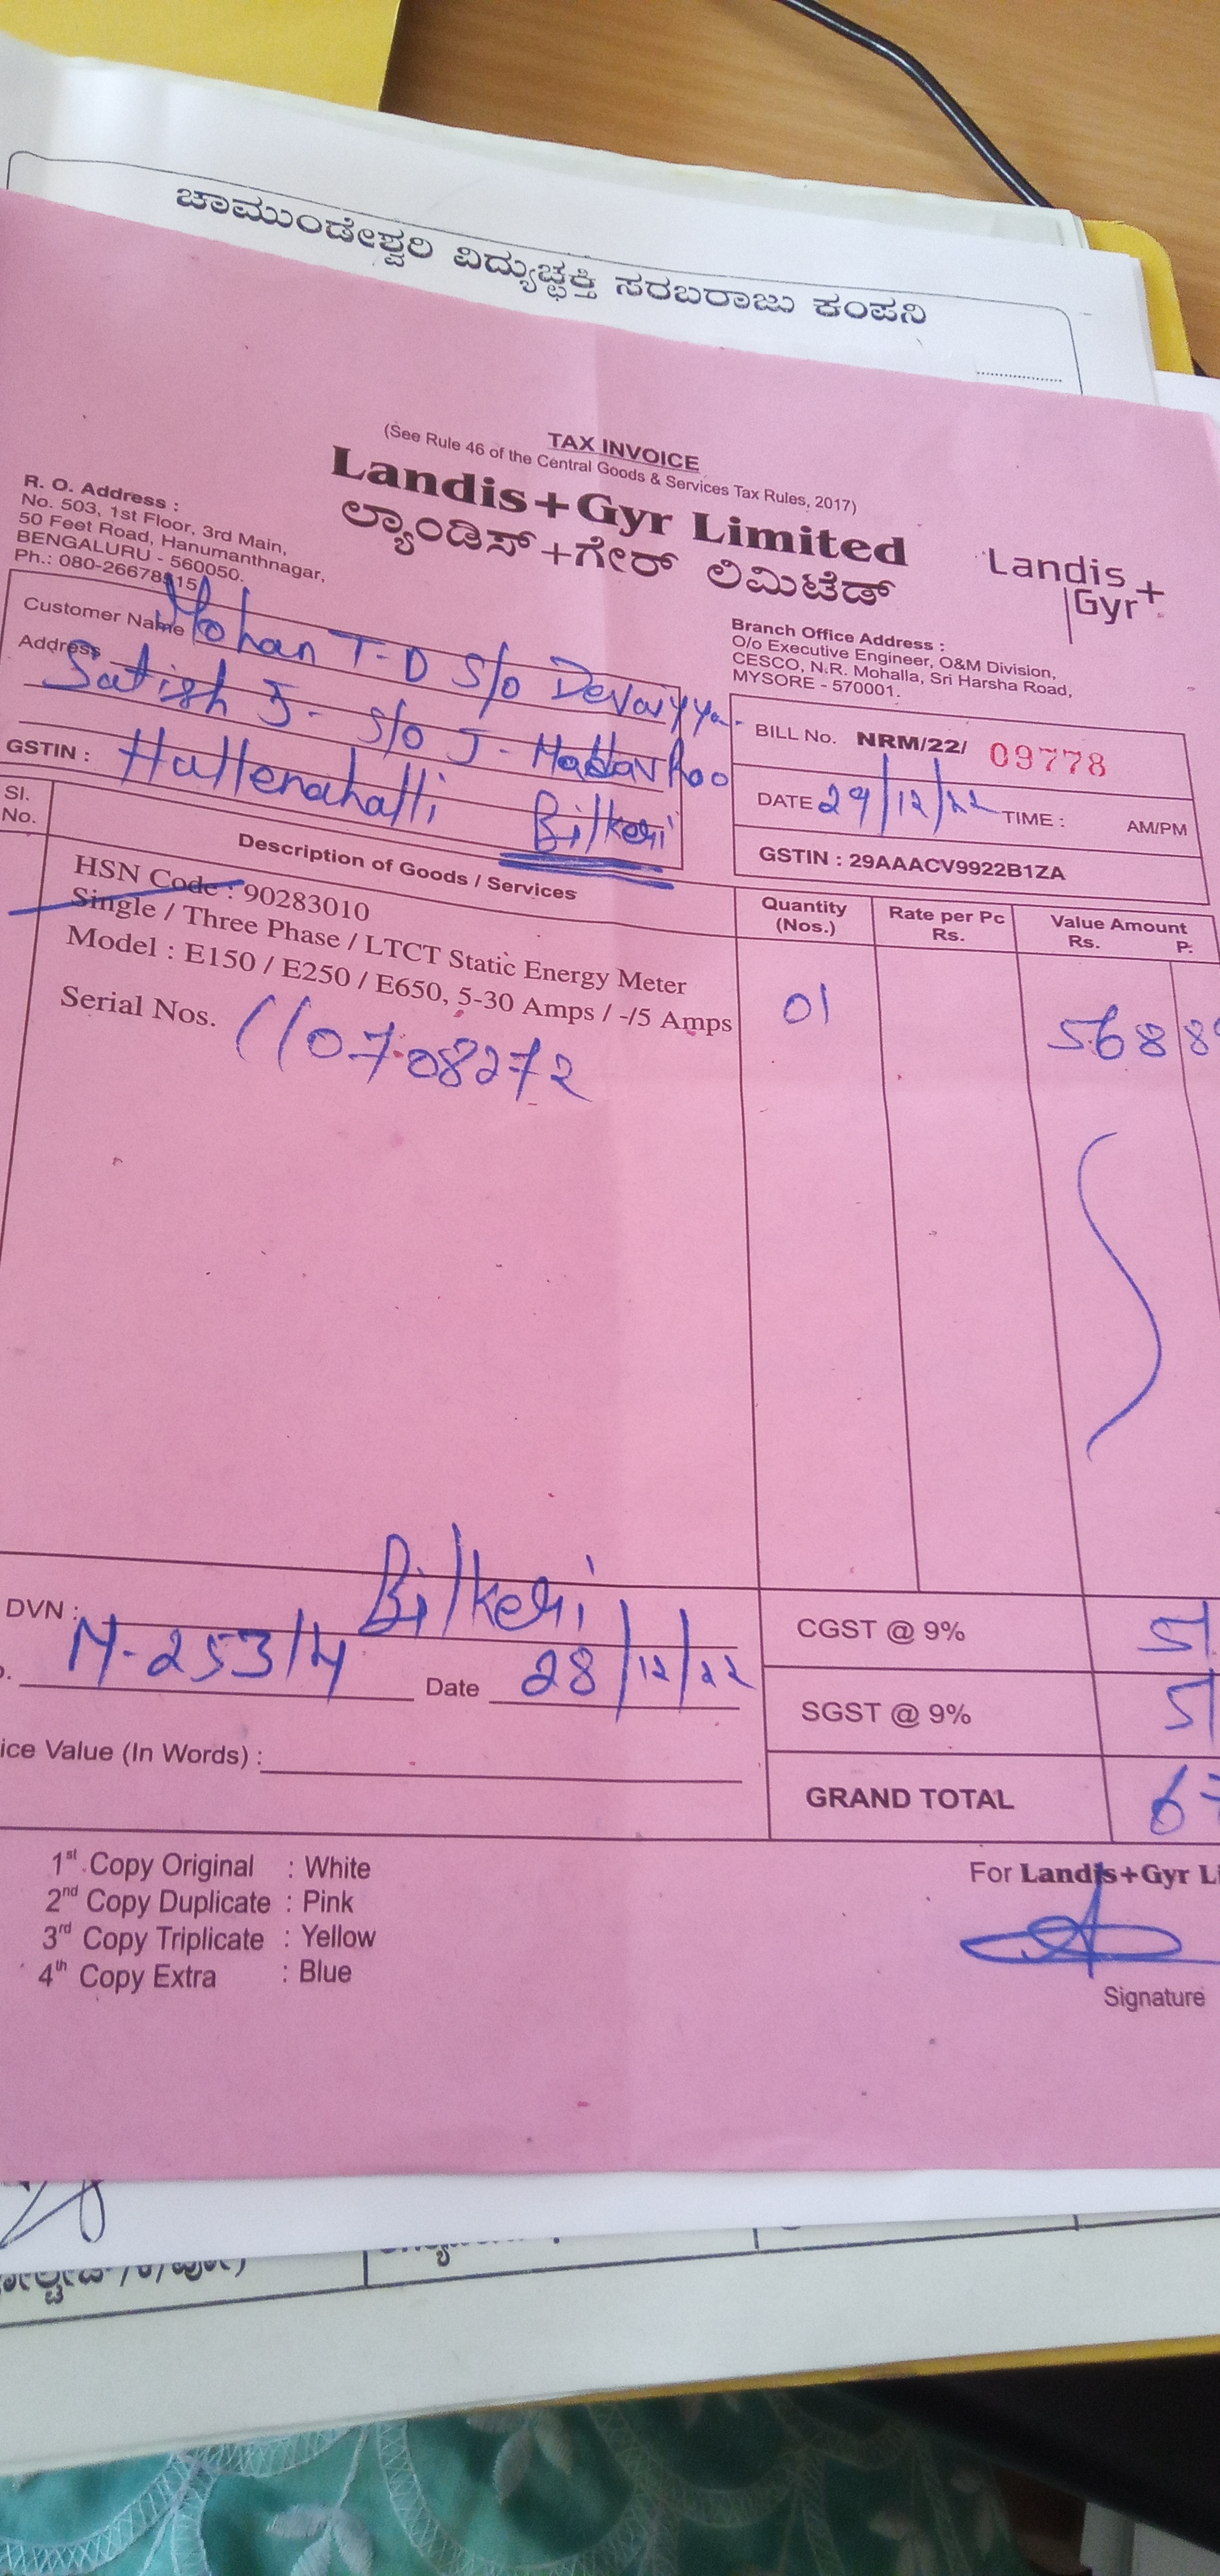 ಚಾಮುಂಡೇಶ್ವರಿ ವಿದ್ಯುಚ್ಛಕ್ತಿ ಸರಬರಾಜು ಕಂಪನಿ
TAX INVOICE
(See Rule 46 of the Central Goods & Services Tax Rules, 2017)
Landis+Gyr Limited
ಲ್ಯಾಂಡಿಸ್+ಗೇರ್ ಲಿಮಿಟೆಡ್
Landis+
Gyr
R. O. Address :
No. 503, 1st Floor, 3rd Main,
50 Feet Road, Hanumanthnagar,
BENGALURU - 560050.
Ph.: 080-26678915
Branch Office Address :
O/o Executive Engineer, O&M Division,
CESCO, N.R. Mohalla, Sri Harsha Road,
MYSORE - 570001.
Customer Name Mohan T-D S/o Devaiyya-
Address Satish J- S/o J- Rao
GSTIN : Hallenahalli Bilkeri
BILL No. NRM/22/ 09778
DATE 29/12/22 TIME : AM/PM
GSTIN : 29AAACV9922B1ZA
Sl. No. Description of Goods / Services Quantity (Nos.) Rate per Pc Rs. Value Amount Rs. P.
HSN Code : 90283010
Single / Three Phase / LTCT Static Energy Meter
Model : E150 / E250 / E650, 5-30 Amps / -/5 Amps 01 568 8
Serial Nos. 110708272
DVN : Bilkeri
M-253/4 Date 28/12/22
CGST @ 9% 51
SGST @ 9% 51
ice Value (In Words) :
GRAND TOTAL 67
1st Copy Original : White
2nd Copy Duplicate : Pink
3rd Copy Triplicate : Yellow
4th Copy Extra : Blue
For Landis+Gyr Li
Signature